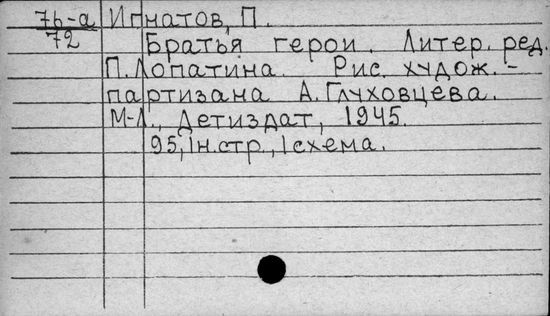 7б-а Игнатов, П.
72 Братья герои. Литер. ред.
П. Лопатина. Рис. худож.-
партизана А. Глуховцева.
М-Л., Детиздат, 1945.
95, 1н.стр., 1 схема.